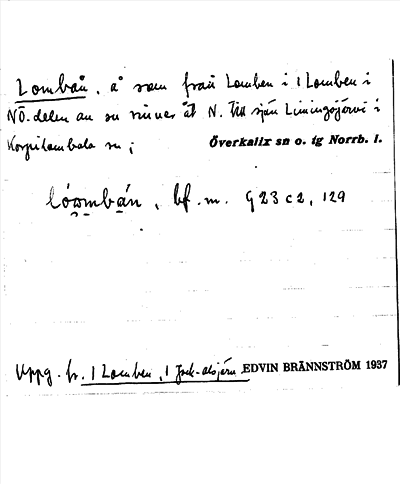 Lombån, å som från Lomben i 1 Lomben i
NÖ-delen av sn rinner åt N. till sjön Liningojärvi i
Korpilombolo sn;
Överkalix sn o. tg Norrb. l.
bf. m. G 23 c 2, 129
Uppg. fr. 1 Lomben, 1
EDVIN BRÄNNSTRÖM 1937